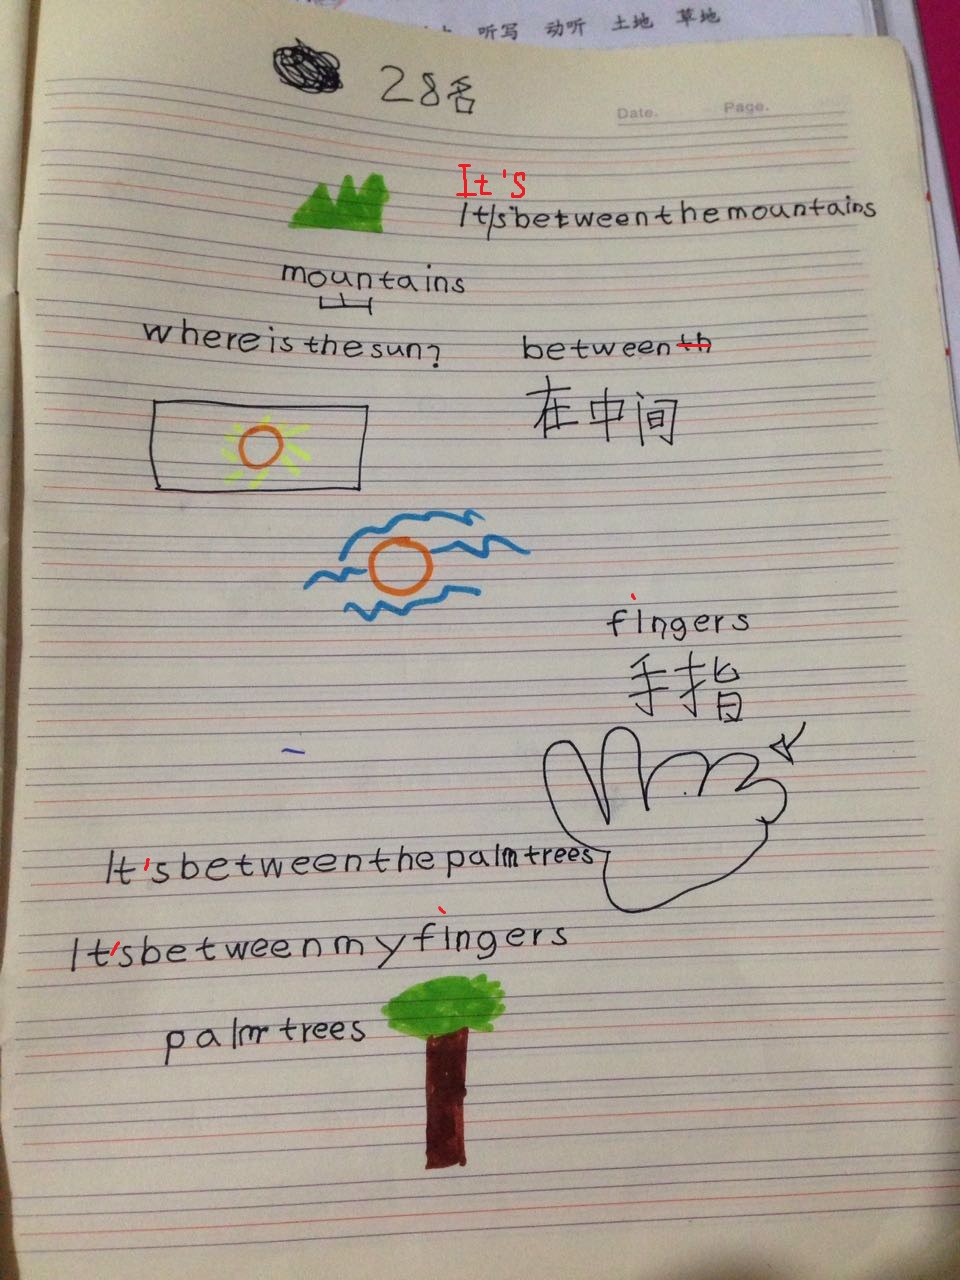 听写 动听 土地 草地
28名
Date. Page.
It's
It's between the mountains
mountains
where is the sun?
between th
在中间
fingers
手指
It's between the palm trees
It's between my fingers
palm trees